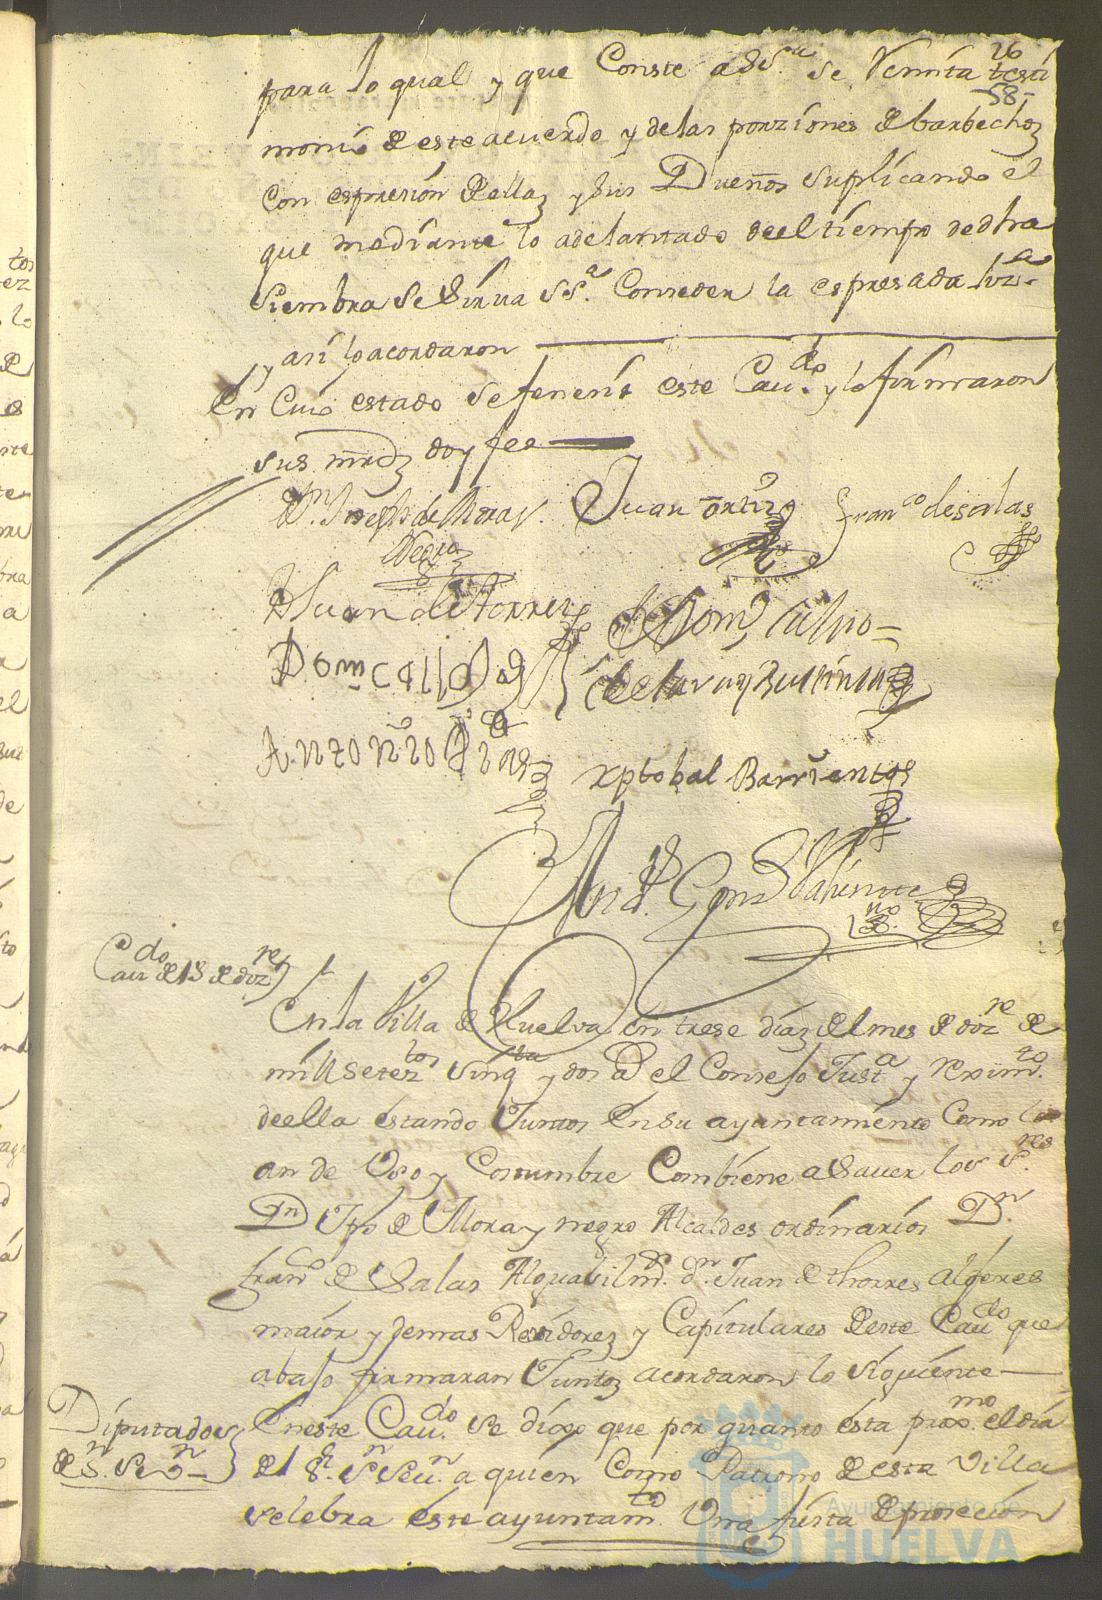 26
58-
para lo qual y que Conste a SSª. se Remita testi
monio de este acuerdo y de las porziones de barbechos
con espresion de ellas y sus Dueños suplicando el
que mediante lo adelantado de el tiempo de dha
siembra se sirua SSª. Conseder la espresada liz.ª
y asi lo acordaron
En Cuio estado se feneció este Cau.do y lo firmaron
sus mrds doy fee
Dn. Joseph de Mora y. Juan ortiz Fran.co de salas
Negro
Juan de torres Dom.o Calbo
Dom.n
Antonio Dias xptobal Barrientos
Cau.do de 13 de doz.re
En la Villa de Huelva en trese dias del mes de doz.re de
mill setez.tos sinq.ta y dos a.s el Consejo Just.a y reximi.to
de ella estando Juntos en su ayuntamiento Como lo
an de Vso y Costumbre Combiene a Sauer los S.res
Dn Jph de Mora y negro Alcaldes ordinarios Dn.
Fran.co de Salas Alguasil m.or dn. Juan de thorres alferes
maior y demas Rexidores y Capitulares de este Cau.do que
abajo firmaran Juntos acordaron lo siguiente
Diputados
de Sn. Sevn
En este Cau.do se dixo que por quanto esta prox.mo el dia
de el Sr. Sn Seun. a quien Como Patrono de esta Villa
selebra este ayuntam.to Vna fiesta de prosesion
Ayuntamiento de
HUELVA